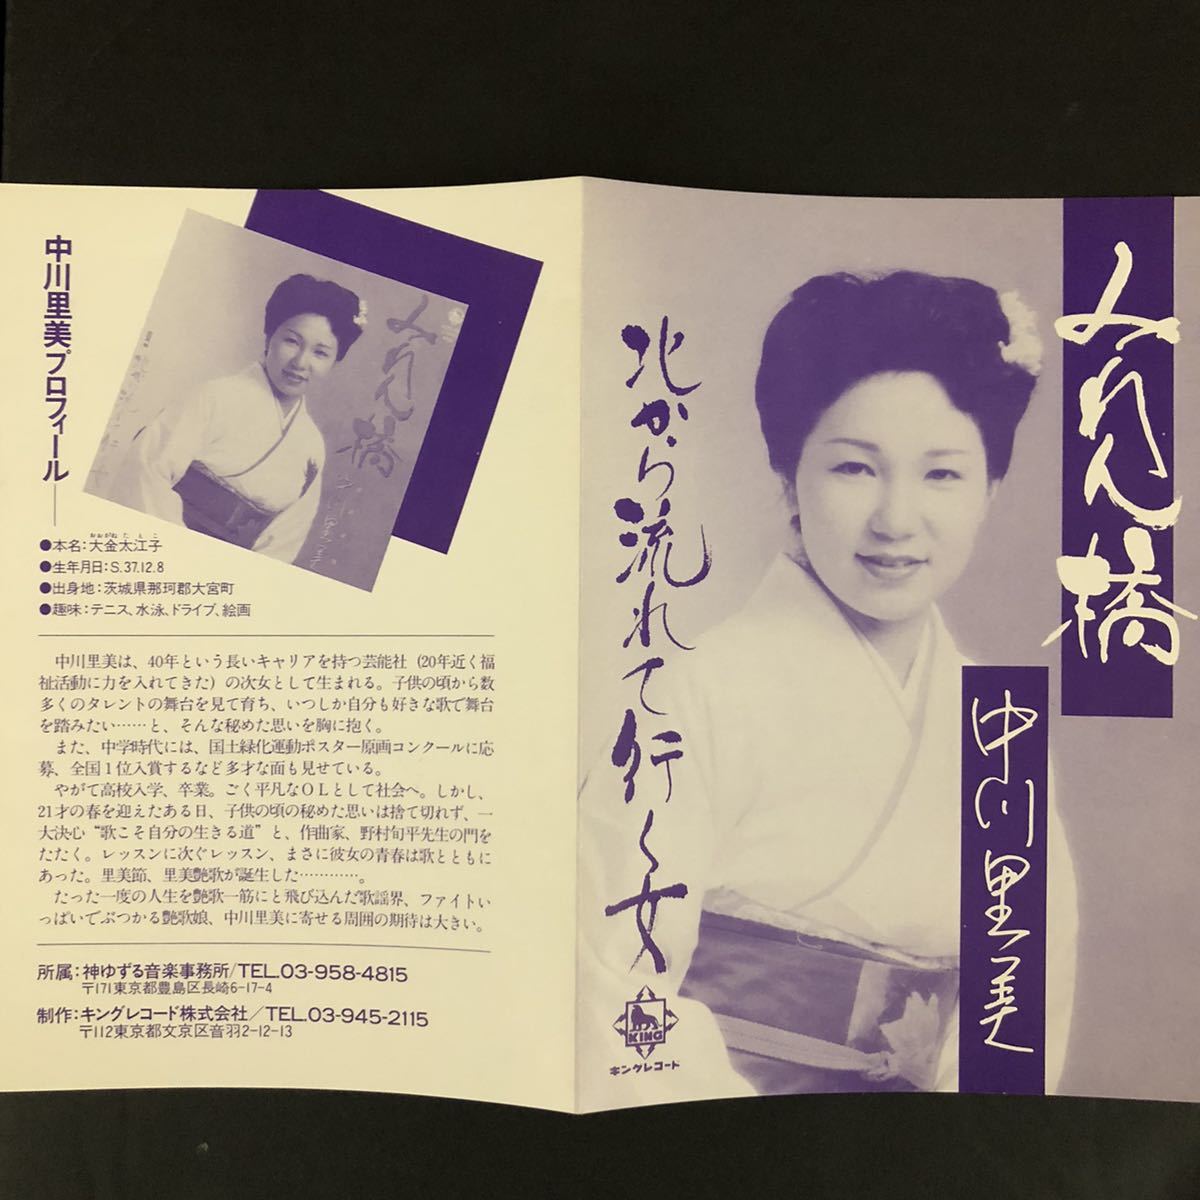 中川里美プロフィール
みれん橋
中川里美
●本名:大金太江子
おおがねたえこ
●生年月日:S.37.12.8
●出身地:茨城県那珂郡大宮町
●趣味:テニス、水泳、ドライブ、絵画
中川里美は、40年という長いキャリアを持つ芸能社(20年近く福
祉活動に力を入れてきた)の次女として生まれる。子供の頃から数
多くのタレントの舞台を見て育ち、いつしか自分も好きな歌で舞台
を踏みたい……と、そんな秘めた思いを胸に抱く。
また、中学時代には、国土緑化運動ポスター原画コンクールに応
募、全国1位入賞するなど多才な面も見せている。
やがて高校入学、卒業。ごく平凡なOLとして社会へ。しかし、
21才の春を迎えたある日、子供の頃の秘めた思いは捨て切れず、一
大決心“歌こそ自分の生きる道”と、作曲家、野村旬平先生の門を
たたく。レッスンに次ぐレッスン、まさに彼女の青春は歌とともに
あった。里美節、里美艶歌が誕生した…………。
たった一度の人生を艶歌一筋にと飛び込んだ歌謡界、ファイトい
っぱいでぶつかる艶歌娘、中川里美に寄せる周囲の期待は大きい。
所属:神ゆずる音楽事務所/TEL.03-958-4815
〒171東京都豊島区長崎6-17-4
制作:キングレコード株式会社/TEL.03-945-2115
〒112東京都文京区音羽2-12-13
みれん橋
中川里美
北から流れて行く女
KING
キングレコード